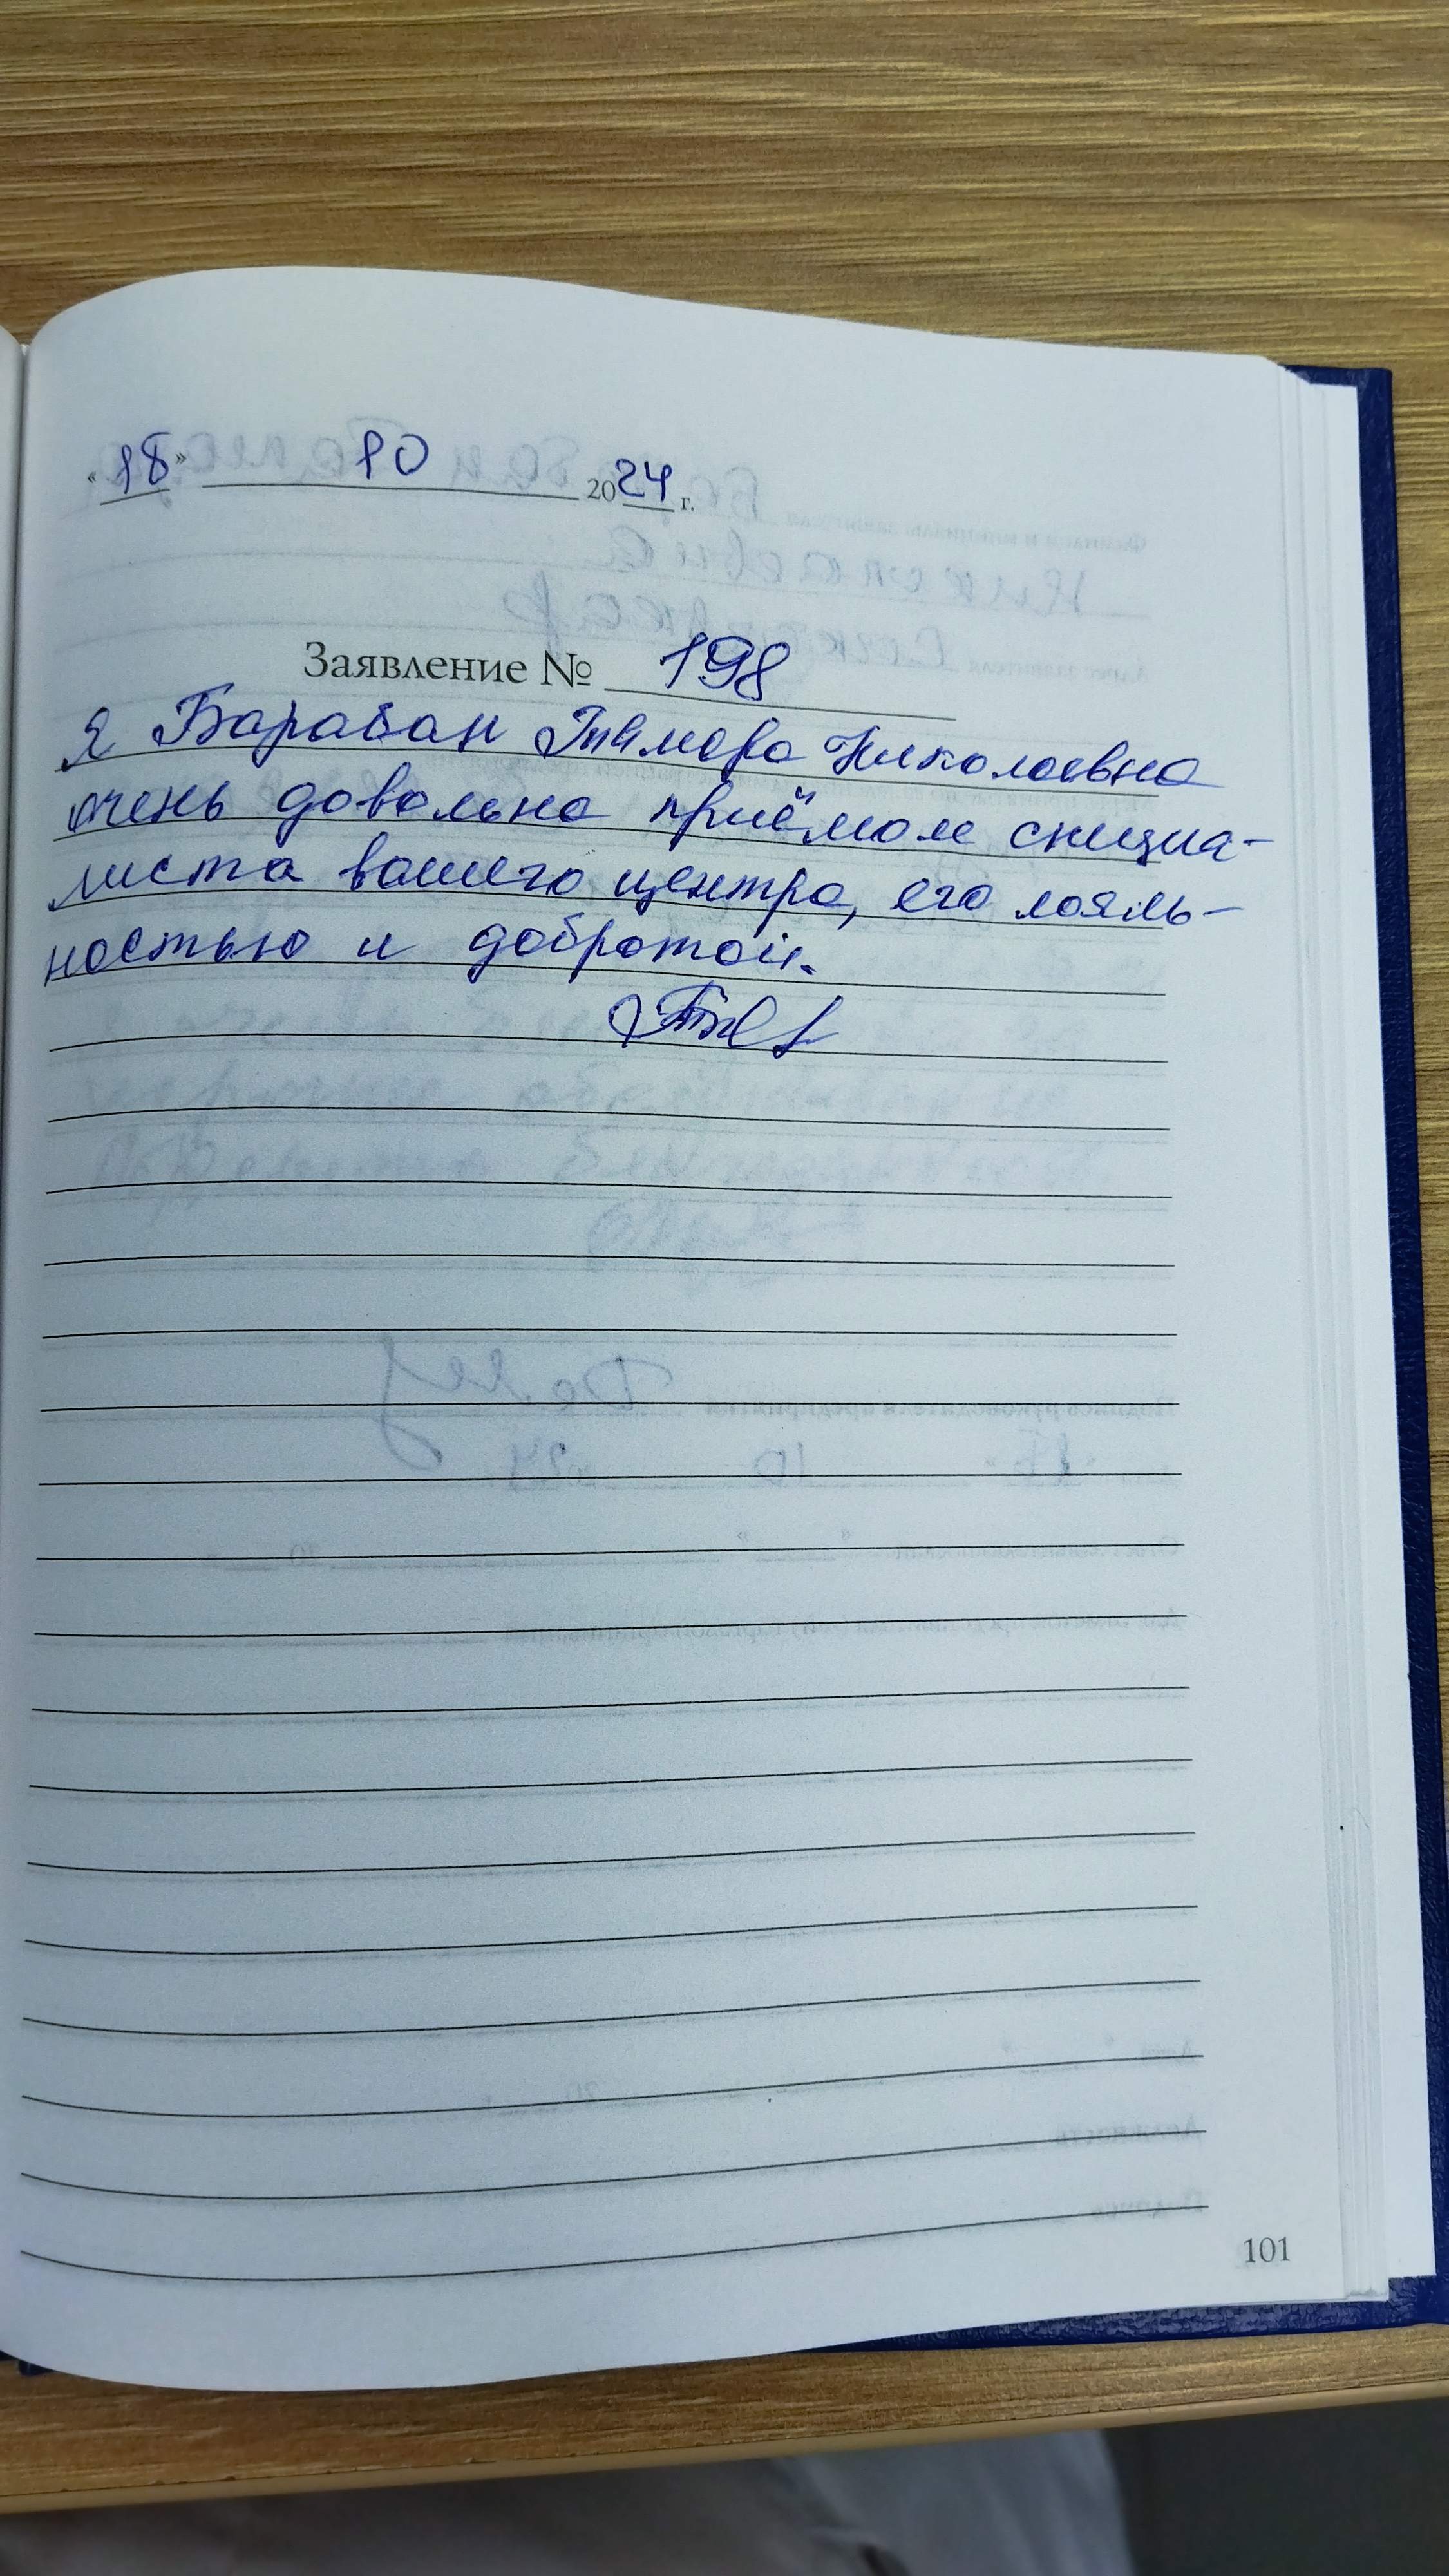 «18» 10 2024 г.
Заявление № 198
Я Барабан Тамара Николаевна
очень довольна приёмом специа-
листа вашего центра, его лояль-
ностью и добротой.
101